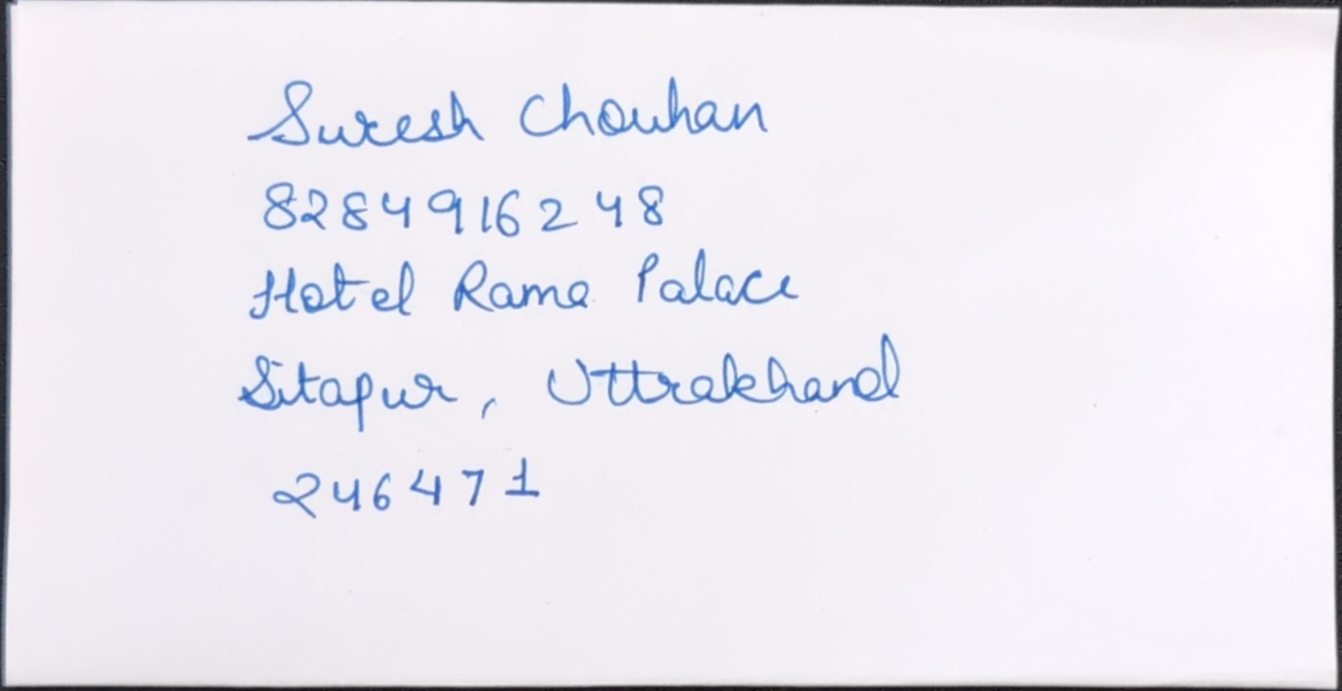 Suresh Chouhan
8284916248
Hotel Rama Palace
Sitapur, Uttrakhand
246471